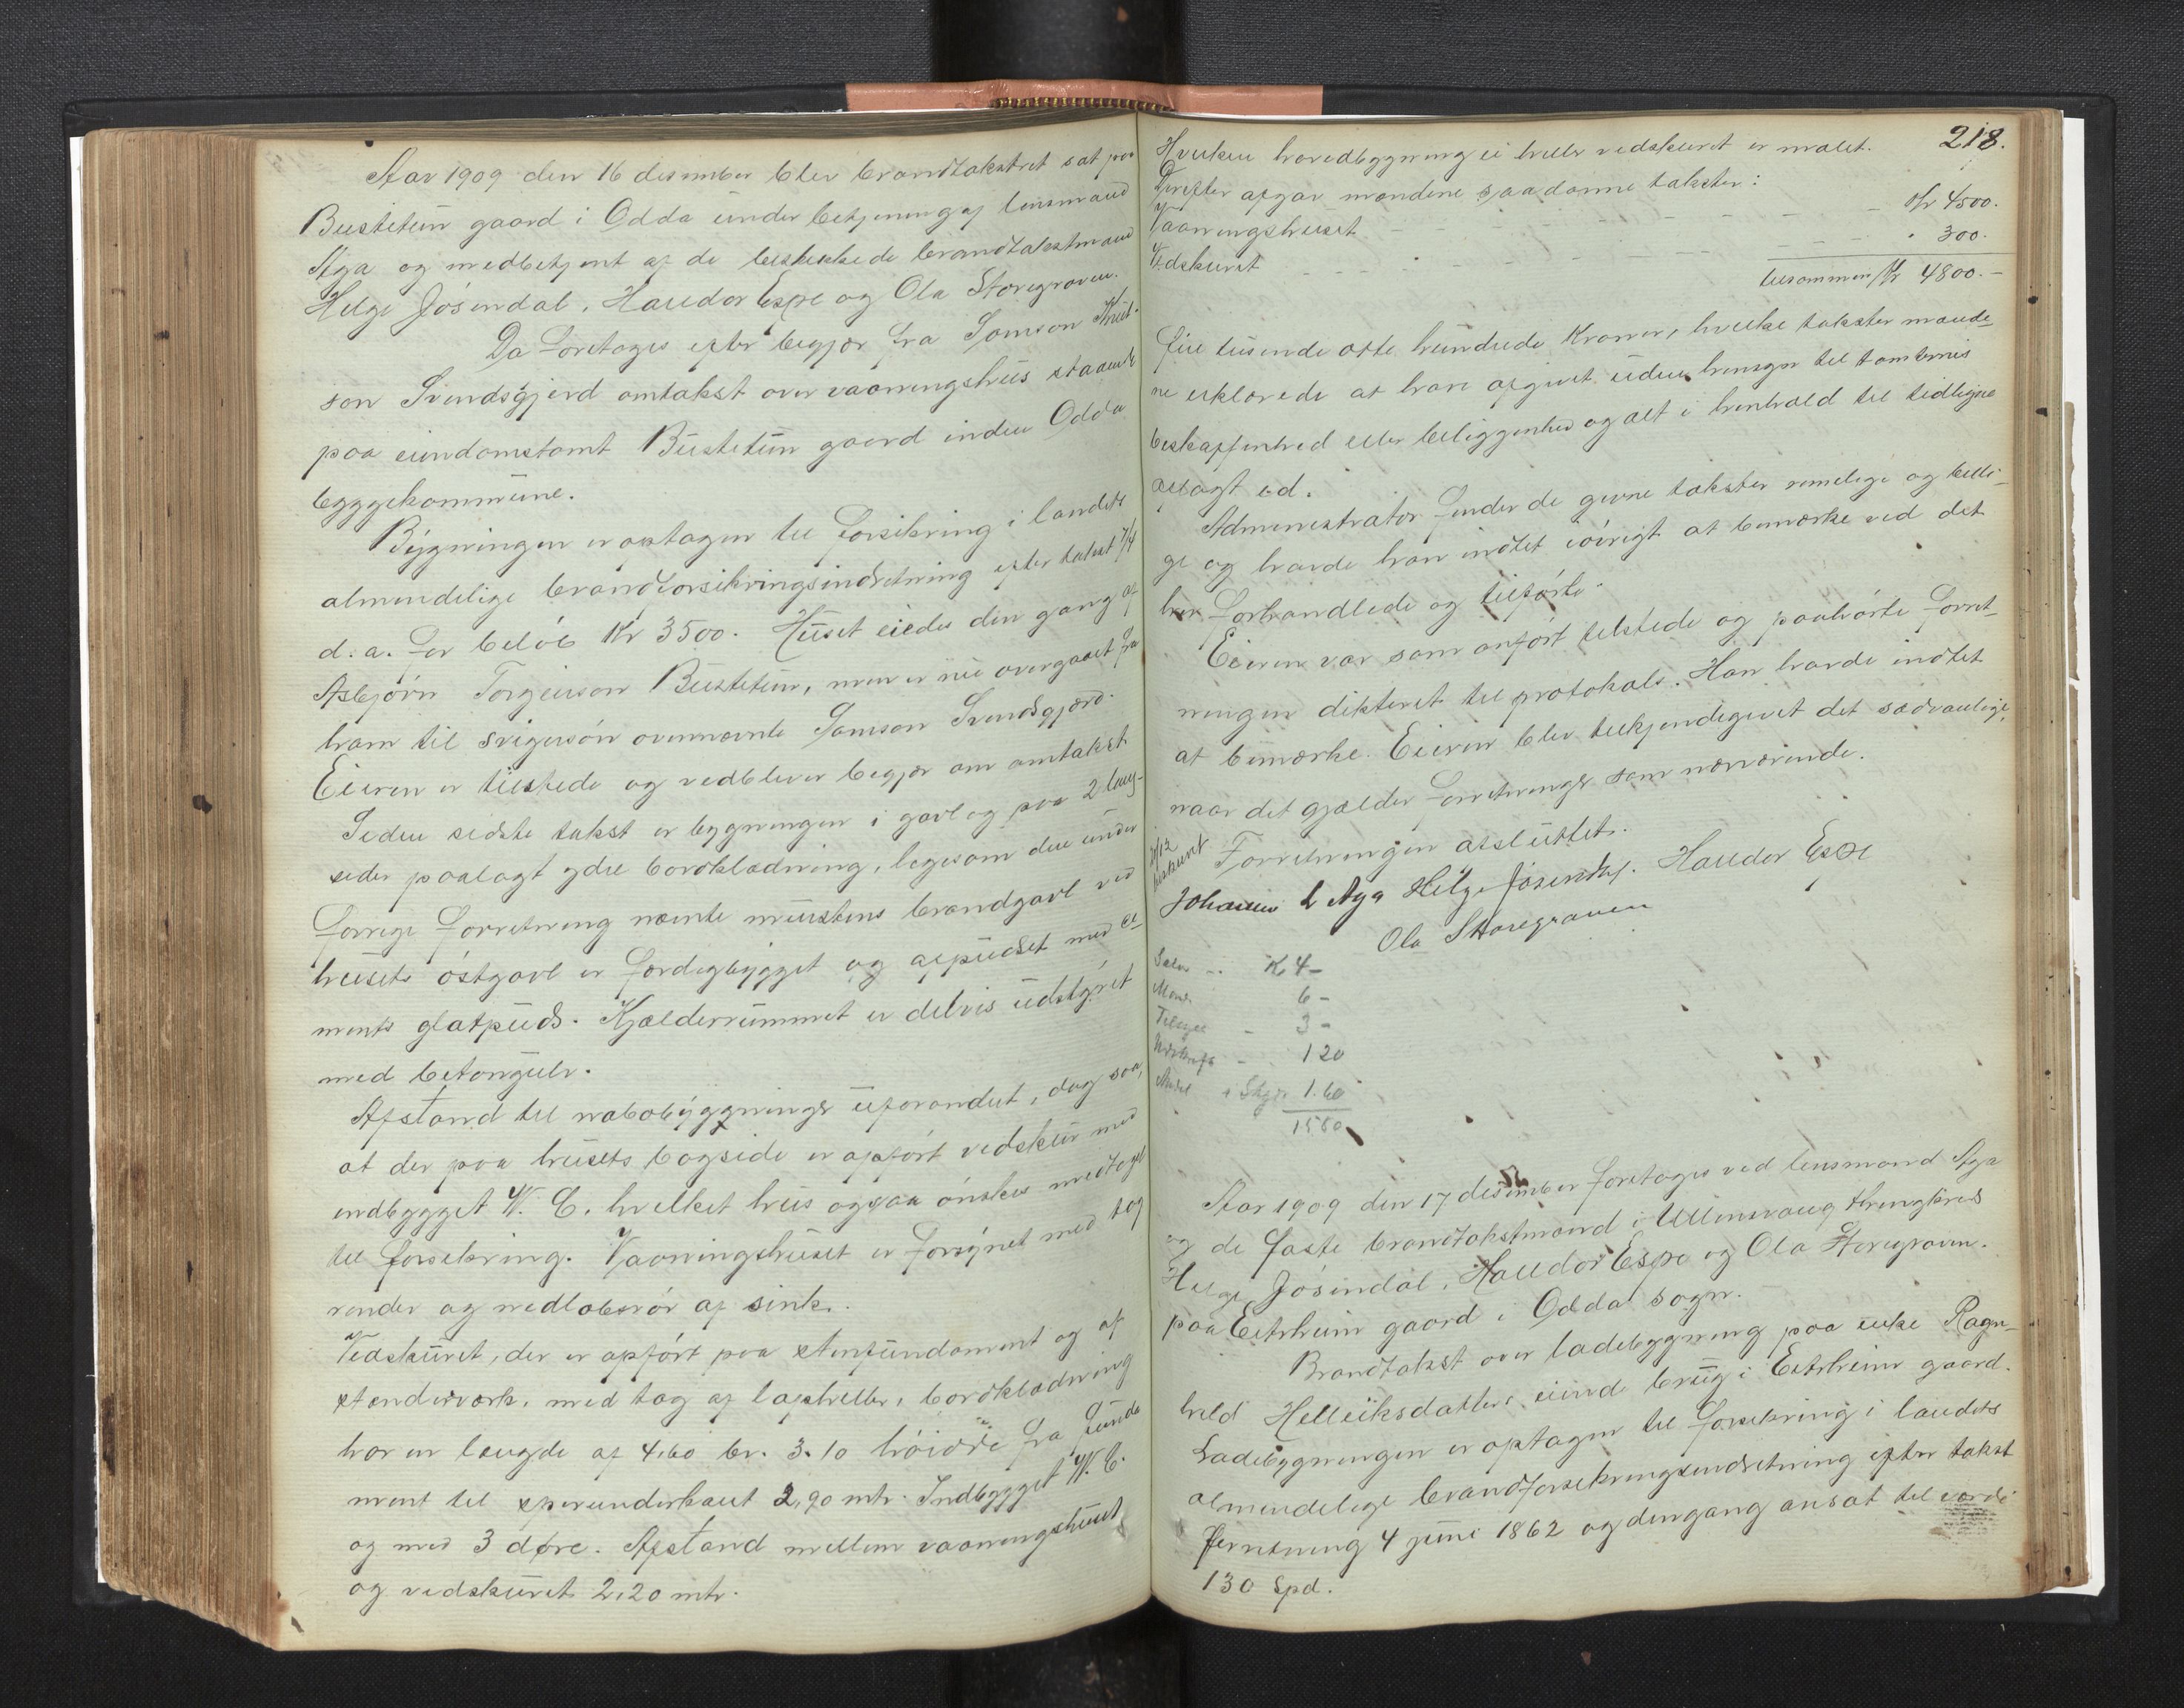 Aar 1909 den 16 desember blev brandtakstret sat paa
Bustetün gaard i Odda under betjening af lensmand
Aga og medbetjent af de beskikkede brandtakstmænd
Helge Jösendal, Haldor Espe og Ola Storegraven.
Da foretoges efter begjær fra Samson
son Svendsgjerd omtakst over vaaningshus staaende
paa eiendomstomt Bustetün gaard inden Odda
byggekommune.
Bygningen er optagen til forsikring i landets
almindelige brandforsikringsindretning efter takst 7/4
d. a. for beløb Kr 3500. Huset eiedes den gang af
Asbjörn Torgeirson Bustetun, men er nu overgaaet fra
ham til svigersön ovennævnte Samson Svendsgjærd.
Eieren er tilstede og vedbliver begjær om omtakst
Siden sidste takst er bygningen i gavl og paa 2 lang-
sider paalagt ydre bordklædning, ligesom den under
forrige forretning nævnte murstens brandgavl ved
husets östgavl er færdigbygget og afpudset med ce
ments glatpuds. Kjælderrummet er delvis udstyret
med betongulv.
Afstand til nabobygninger uforandret, dog saa,
at der paa husets bagside er opfört vedskur med
indbygget W. C. hvilket hus ogsaa önskes medtaget
til forsikring. Vaaningshuset er forsynet med tag
render og nedløbsrör af sink.
Vedskuret, der er opfört paa stenfundament og af
stenderværk, med tag af tagheller, bordklædning
har en længde af 4.60 br. 3.10 höide fra funda
ment til sperunderkant 2,90 mtr. Indbygget W. C.
og med 3 døre. Afstand mellem vaaningshuset
og vedskuret 2,20 mtr.
218.
Hverken hovedbygning ei heller vedskuret er malet.
Derefter afgav mændene saadanne takster:
Vaaningshuset - - - - - - - Kr 4500.
Vedskuret - - - - - - - " 300.
tilsammen Kr 4800.-
fire tusende otte hundrede Kroner, hvilke takster mænde-
ne erklærede at have afgivet uden hensyn til tomternes
beskaffenhed eller beliggenhed og alt i henhold til tidligere
aflagt ed.
Administrator finder de givne takster rimelige og billi-
ge og havde han indtet iövrigt at bemærke ved det
her forhandlede og tilførte.
Eieren var som anfört tilstede og paahörte forret-
ningen dikteret til protokols. Han havde indtet
at bemærke. Eieren blev tilkjendegivet det sædvanlige,
naar det gjælder forretninger som nærværende.
Forretningen afsluttet.
Johannes L Aga Helge Jösendal. Haldor Espe
Ola Storegraven
K 4-
Mænd 6-
3-
Udskrift - 120
i Skyds 1.60
1580
Aar 1909 den 17 desember foretoges ved lensmand Aga
og de faste brandtakstmænd i Ullensvang thinglæd
Helge Jösendal, Haldor Espe og Ola Storegraven.
paa Eitrheim gaard i Odda sogn.
Brandtakst over ladebygning paa enke Ragn-
hild Helleiksdatters eiende brug i Eitrheim gaard.
Ladebygningen er optagen til forsikring i landets
almindelige brandforsikringsindretning efter takst
forretning 4 juni 1862 og dengang ansat til værdi
130 Spd.